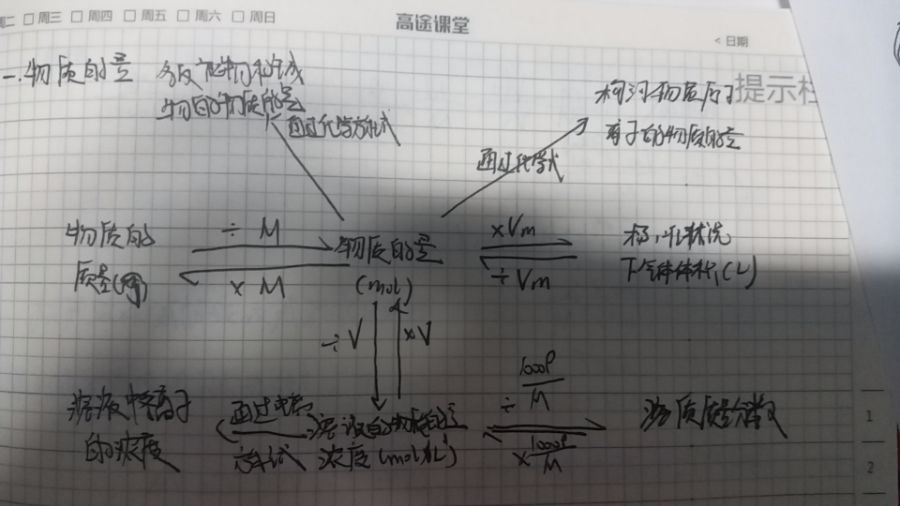 周二 □ 周三 □ 周四 □ 周五 □ 周六 □ 周日
高途课堂
< 日期
一.物质的量
各反应物和生成
物的物质的量
通过化学方程式
构成物质原子
离子的物质的量
提示栏
通过化学式
物质的
质量(g)
÷ M
× M
物质的量
(mol)
×Vm
÷Vm
标准状况
下气体体积(L)
÷V
×V
溶液中离子
的浓度
通过电离
方程式
溶液的物质的量
浓度(mol/L)
÷ 1000ρ/M
× 1000ρ/M
溶质质量分数
1
2